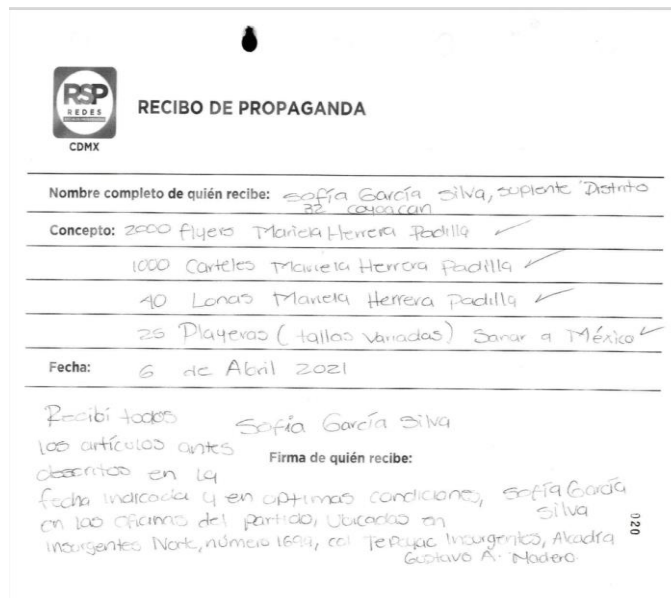 RSP
REDES
CDMX
RECIBO DE PROPAGANDA
Nombre completo de quién recibe: Sofía García Silva, suplente Distrito
32 coyoacan
Concepto: 2000 flyers Mariela Herrera Padilla ✓
1000 Carteles Mariela Herrera Padilla ✓
40 Lonas Mariela Herrera Padilla ✓
25 Playeras (tallas variadas) Sanar a México ✓
Fecha: 6 de Abril 2021
Recibi todos
los artículos antes
descritos en la
fecha indicada y en optimas condiciones,
en las oficinas del partido, ubicadas en
insurgentes Norte, número 1694, col Tepeyac Insurgentes, Alcadía
Gustavo A. Madero.
Sofía García Silva
Firma de quién recibe:
Sofía García
Silva
020